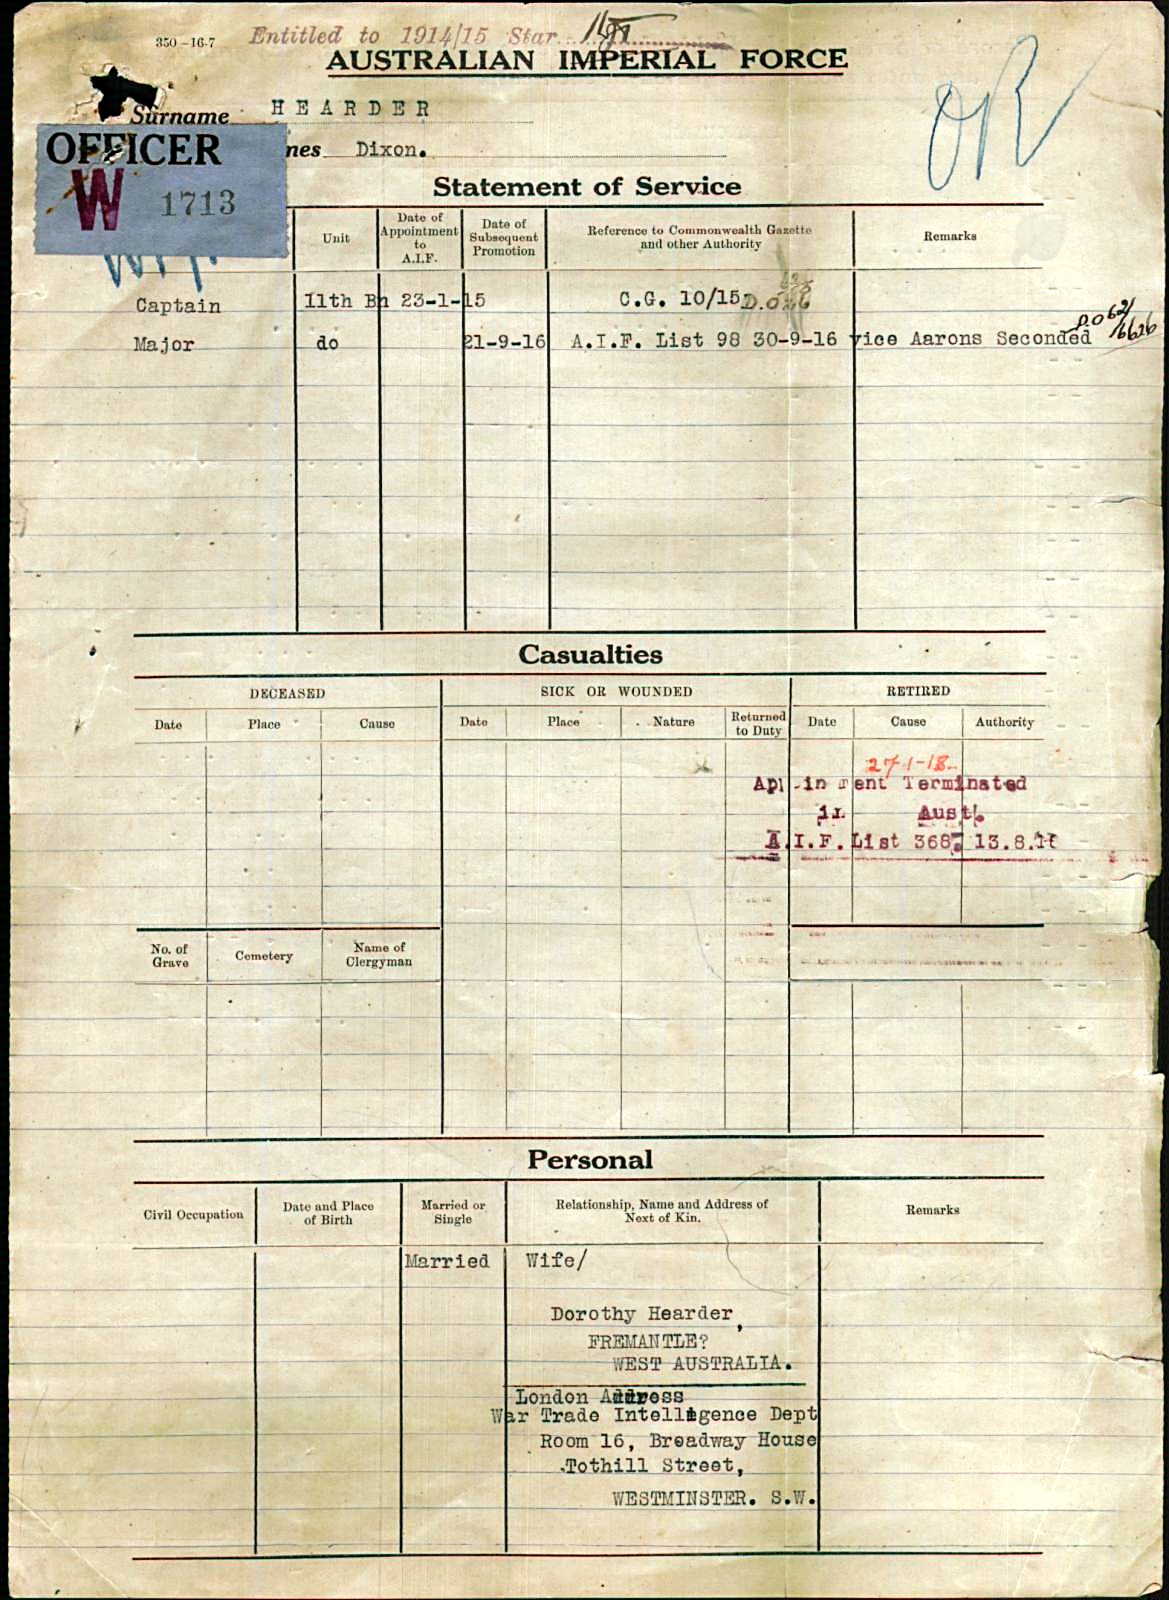 350-16-7
Entitled to 1914/15 Star
AUSTRALIAN IMPERIAL FORCE
OR
Surname HEARDER
OFFICER
W 1713
nes Dixon.
Statement of Service
Unit Date of Appointment to A.I.F. Date of Subsequent Promotion Reference to Commonwealth Gazette and other Authority Remarks
Captain 11th Bn 23-1-15 C.G. 10/15
Major do 21-9-16 A.I.F. List 98 30-9-16 vice Aarons Seconded D.O 62/6626
Casualties
DECEASED SICK OR WOUNDED RETIRED
Date Place Cause Date Place Nature Returned to Duty Date Cause Authority
27-1-18
Appointment Terminated
in Aust.
A.I.F. List 368. 13.8.18
No. of Grave Cemetery Name of Clergyman
Personal
Civil Occupation Date and Place of Birth Married or Single Relationship, Name and Address of Next of Kin. Remarks
Married Wife/
Dorothy Hearder,
FREMANTLE?
WEST AUSTRALIA.
London Address
War Trade Intelligence Dept
Room 16, Broadway House
Tothill Street,
WESTMINSTER. S.W.